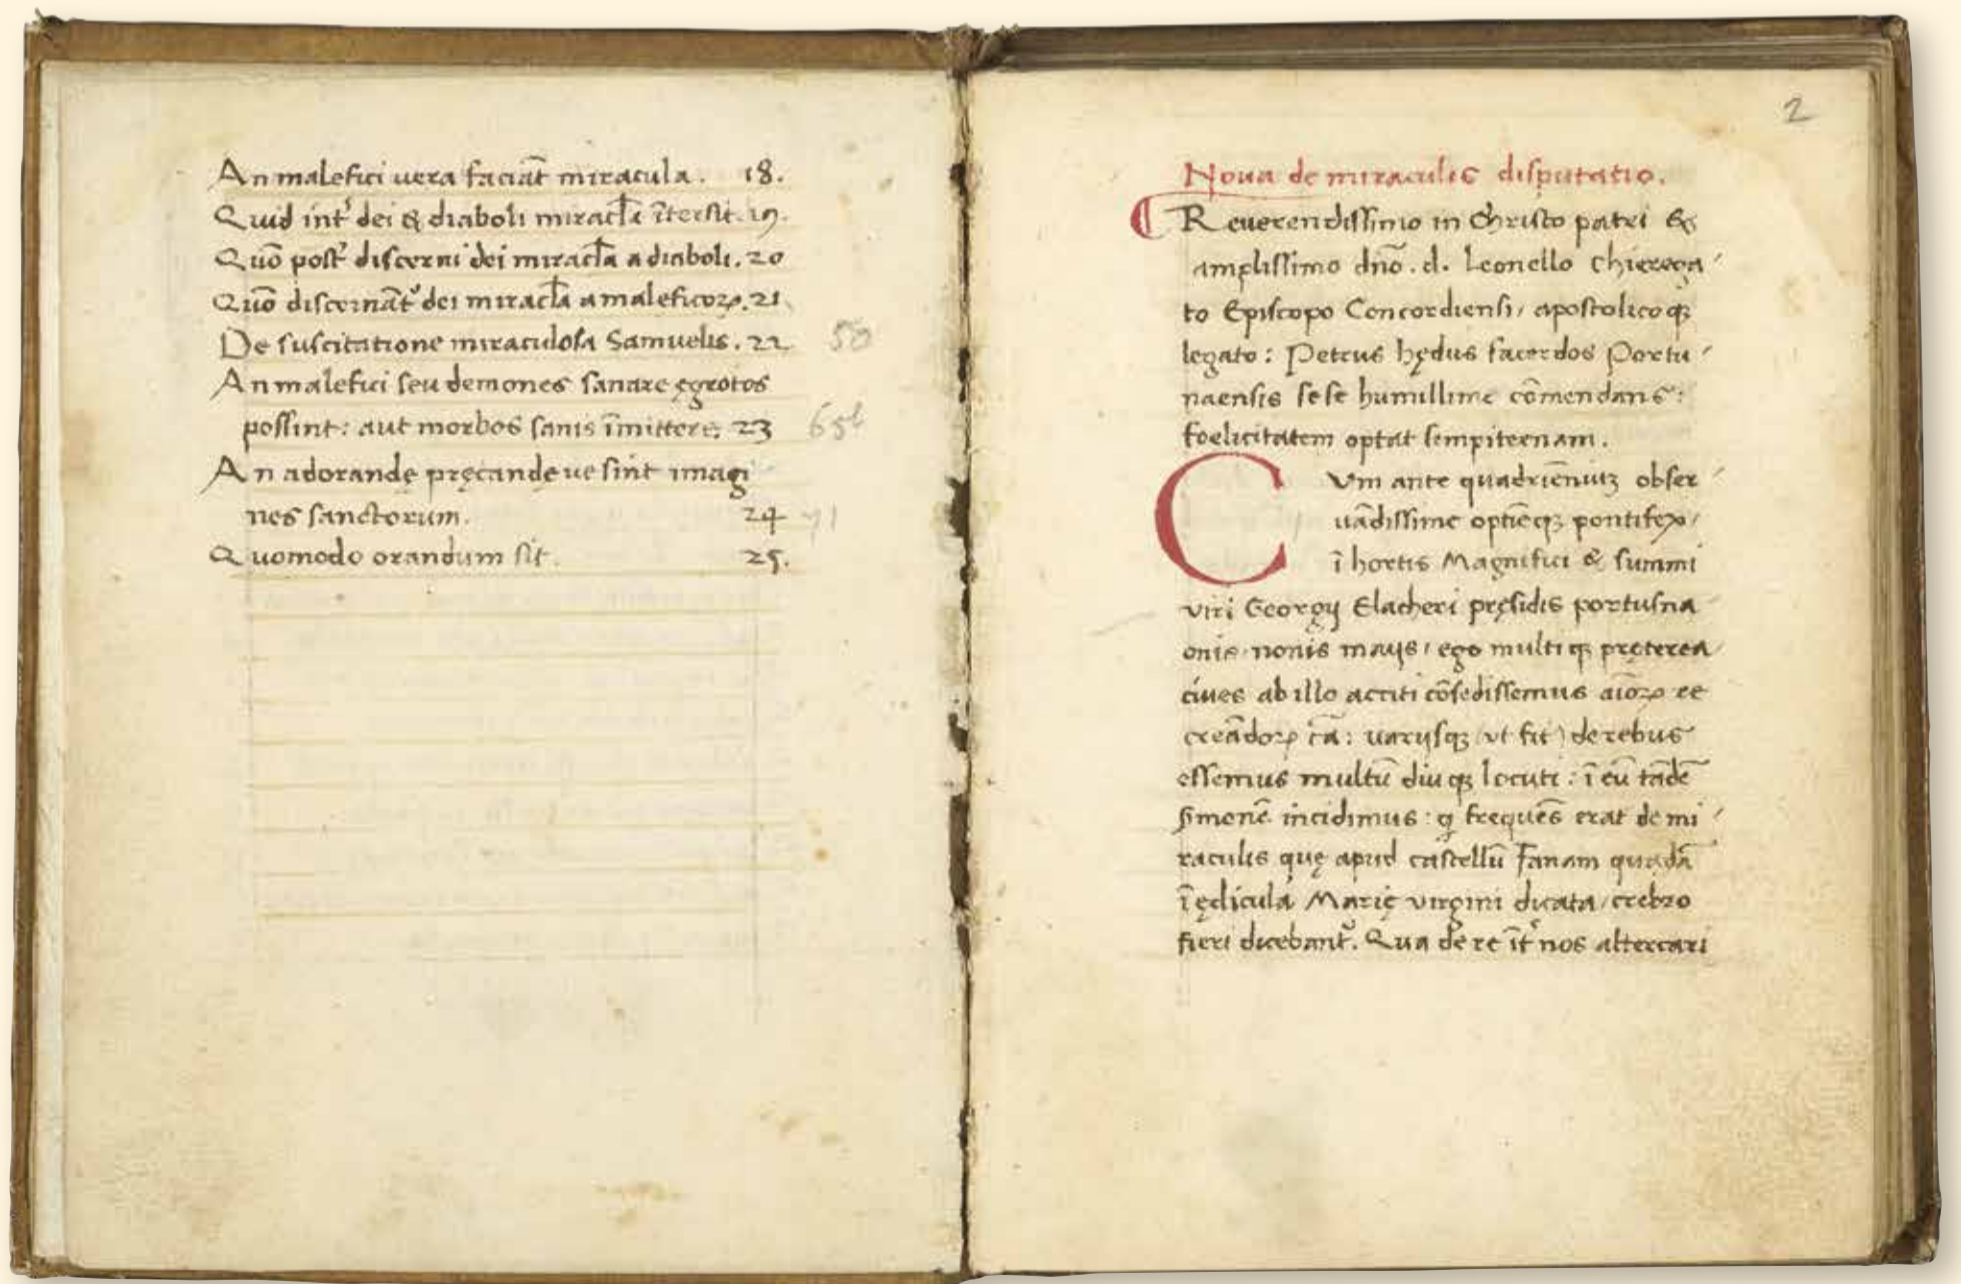 An malefici uera faciāt miracula. 18.
Quid int̉ dei & diaboli miracl̄a ītersit. 19.
Quō post̉ discerni dei miracl̄a a diaboli. 20
Quō discernāt̉ dei miracl̄a a maleficoꝝ. 21.
De suscitatione miraculosa Samuelis. 22 50
An malefici seu demones sanare ęgrotos
possint: aut morbos sanis īmittere. 23
An adorandę pręcandę ue sint imagi
nes sanctorum. 24 71
Quomodo orandum sit. 25.
2
Noua de miraculis disputatio.
Reuerendissimo in Christo patri &
amplissimo dnō. d. Leonello Chierega-
to Episcopo Concordiensi, apostolicoqꝫ
legato: Petrus hędus sacerdos Portu-
naensis sese humillime cōmendans:
foelicitatem optat sempiternam.
CVm ante quadrienniuꝫ obser-
uādissime optīeqꝫ pontifex,
ī hortis Magnifici & summi
viri Georgij Elacheri pręsidis portusna
onis nonis maijs, ego multiqꝫ pręterea
ciues ab illo acciti cōsedissemus aīoꝝ re
creādoꝝ cā: uarijsqꝫ (vt fit) de rebus
essemus multū diuqꝫ locuti: ī eū tādē
sermonē incidimus: q̇ frequēs erat de mi-
raculis quę apud castellū Fanam quadā
ī ędicula Marię virgini dicata, crebro
fieri dicebant̉. Qua de re īt̉ nos altercari